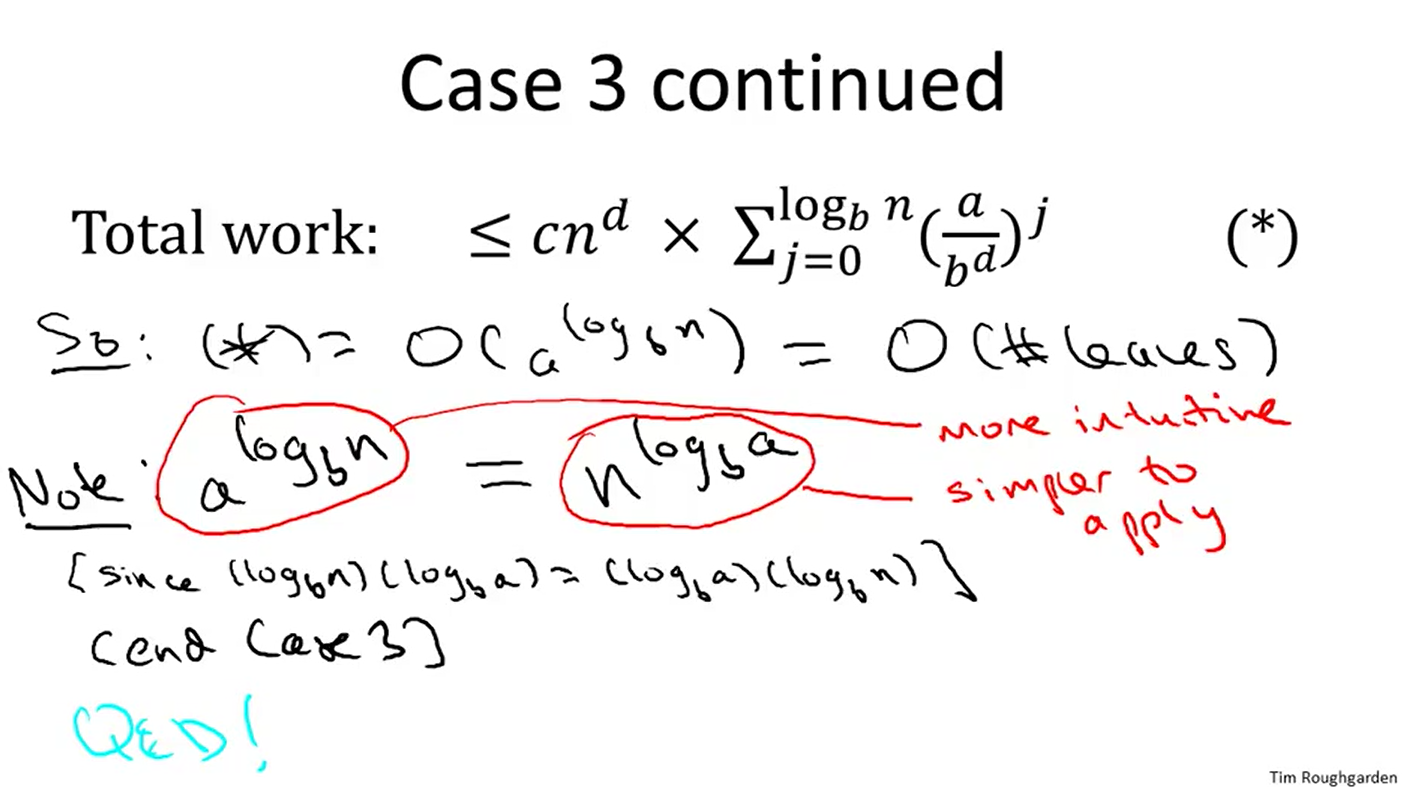 Case 3 continued
Total work: ≤ cn^d × ∑_{j=0}^{log_b n} (a/b^d)^j (*)
So: (*) = O(a^{log_b n}) = O(# leaves)
Note: a^{log_b n} = n^{log_b a}
more intuitive
simpler to
apply
[since (log_b n)(log_b a) = (log_b a)(log_b n)]
(end Case 3]
QED!
Tim Roughgarden